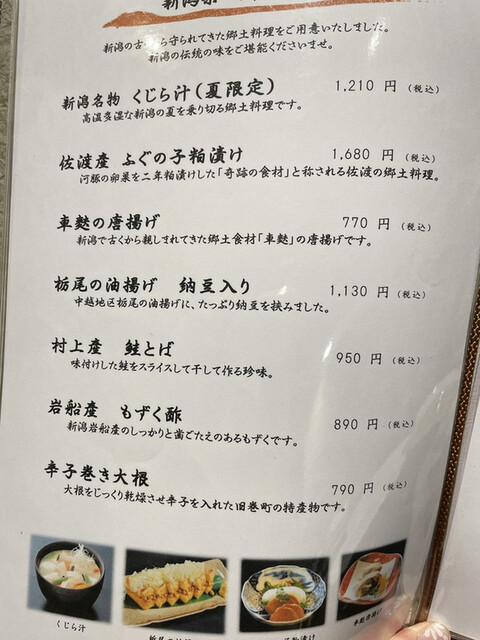 新潟の古くから守られてきた郷土料理をご用意いたしました。
新潟の伝統の味をご堪能くださいませ。
新潟名物 くじら汁(夏限定) 1,210 円 (税込)
高温多湿な新潟の夏を乗り切る郷土料理です。
佐渡産 ふぐの子粕漬け 1,680 円 (税込)
河豚の卵巣を二年粕漬けした「奇跡の食材」と称される佐渡の郷土料理。
車麩の唐揚げ 770 円 (税込)
新潟で古くから親しまれてきた郷土食材「車麩」の唐揚げです。
栃尾の油揚げ 納豆入り 1,130 円 (税込)
中越地区栃尾の油揚げに、たっぷり納豆を挟みました。
村上産 鮭とば 950 円 (税込)
味付けした鮭をスライスして干して作る珍味。
岩船産 もずく酢 890 円 (税込)
新潟岩船産のしっかりと歯ごたえのあるもずくです。
辛子巻き大根 790 円 (税込)
大根をじっくり乾燥させ辛子を入れた旧巻町の特産物です。
くじら汁
車麩唐揚げ